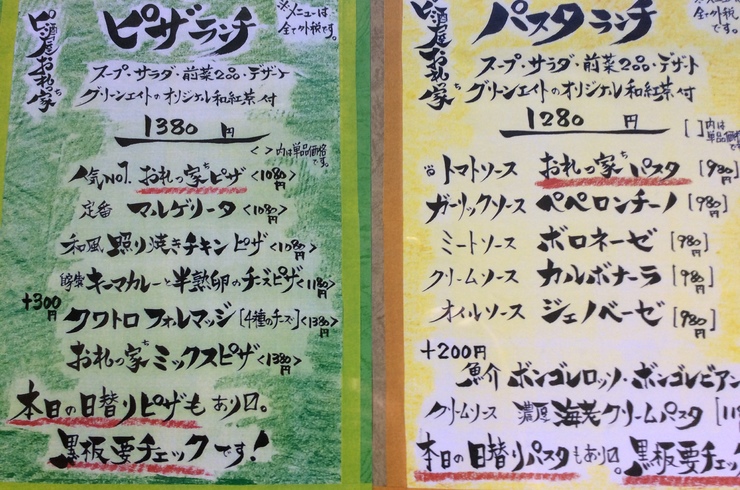 ピ酒屋お札っ家
ピザランチ
※メニューは
全て外税です。
スープ・サラダ・前菜2品・デザート
グリーンエイトのオリジナル和紅茶付
1380円
< >内は単品価格です。
人気No1. お札っ家ピザ <1080円>
定番 マルゲリータ <1080円>
和風 照り焼きチキンピザ <1080円>
キーマカレーと半熟卵のチーズピザ <1180円>
+300円
クワトロフォルマッジ [4種のチーズ] <1380円>
お札っ家ミックスピザ <1380円>
本日の日替りピザもあり〼。
黒板要チェックです!
ピ酒屋お札っ家
パスタランチ
メニューは
全て外税です。
スープ・サラダ・前菜2品・デザート
グリーンエイトのオリジナル和紅茶付
1280円
[ ]内は単品価格です。
トマトソース お札っ家パスタ [980円]
ガーリックソース ペペロンチーノ [980円]
ミートソース ボロネーゼ [980円]
クリームソース カルボナーラ [980円]
オイルソース ジェノベーゼ [980円]
+200円
魚介 ボンゴレロッソ・ボンゴレビアン
クリームソース 濃厚海老クリームパスタ [11
本日の日替りパスタもあり〼。黒板要チェッ